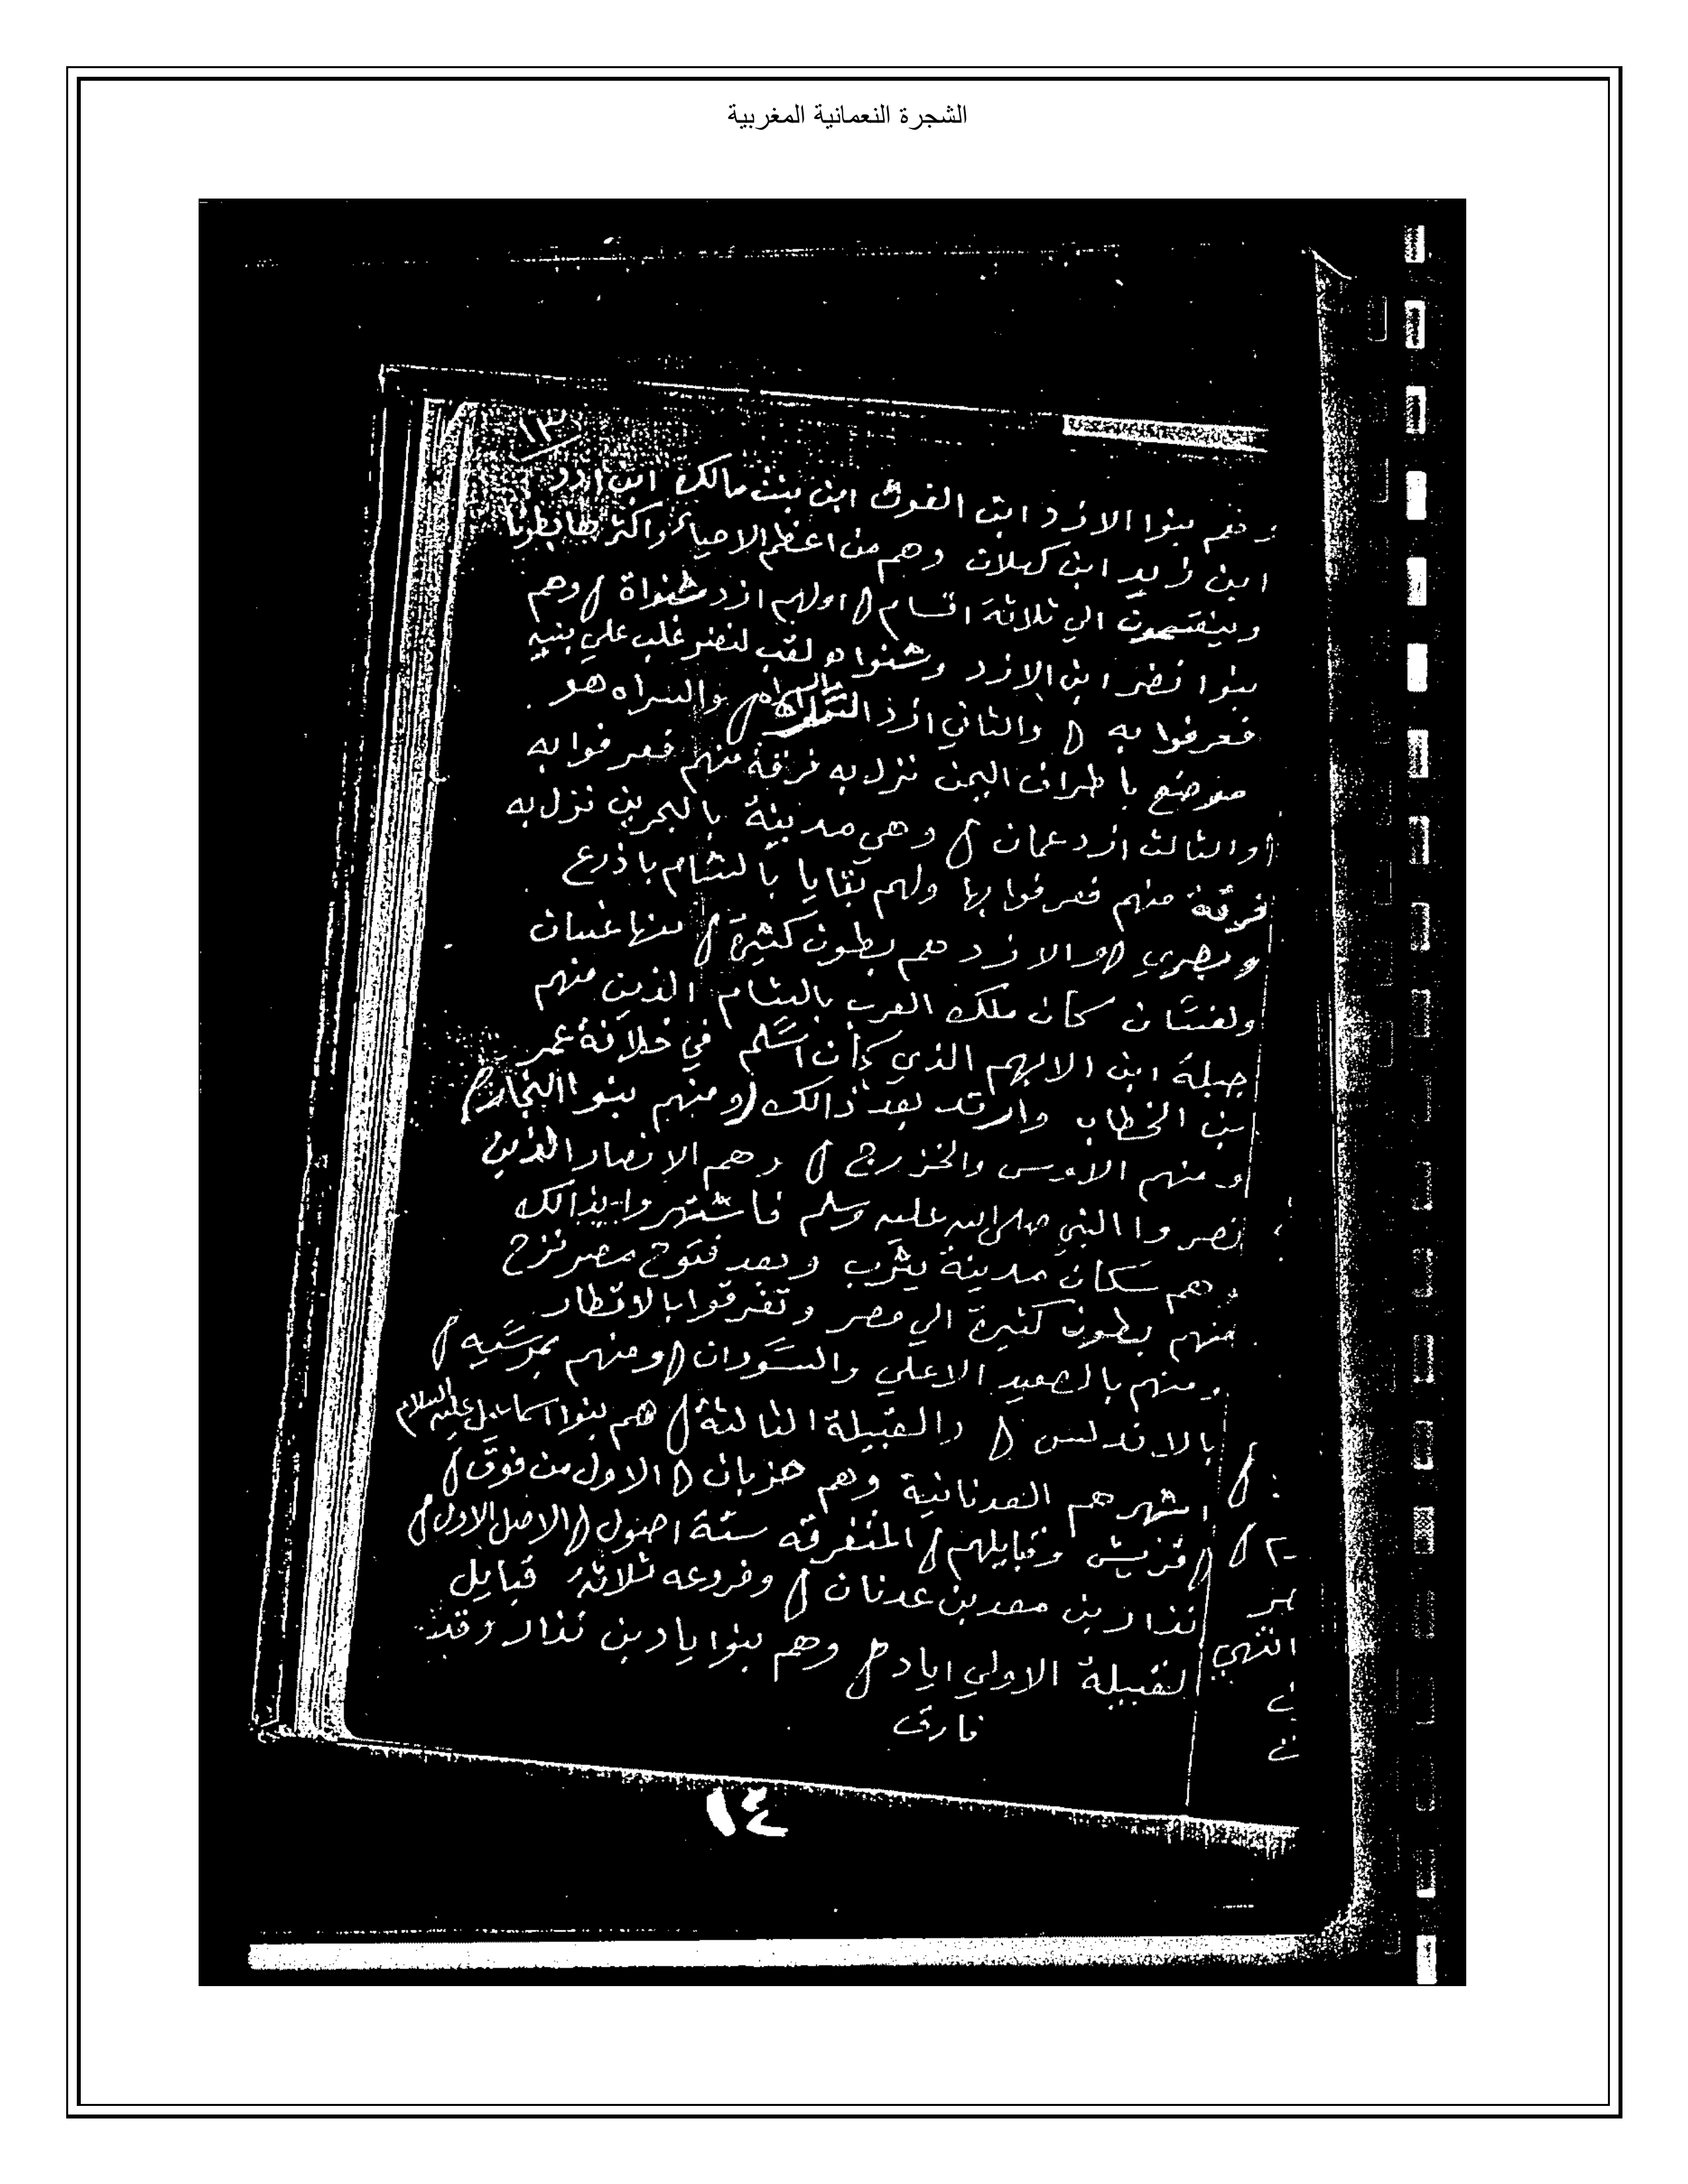 الشجرة النعمانية المغربية
١٣
وهم بنوا الازد ابن الغوث ابن بنت مالك ابن ادد
ابن زيد ابن كهلان وهم من اعظم الاحياء واكثرها بطونا
وينقسمون الي ثلاثة اقسام اولهم ازد شنواة وهم
بنوا نضر ابن الازد وشنواه لقب لنضر غلب علي بنيه
فعرفوا به والثاني ازد السراه والسراه هو
موضع باطراف اليمن نزل به فرقة منهم فعرفوا به
والثالث ازد عمان وهي مدينة بالبحرين نزل به
فرقة منهم فعرفوا بها ولهم بقايا بالشام باذرع
وبصري والازد هم بطون كثيرة منها غسان
ولغسان كان ملك العرب بالشام الذين منهم
جبلة ابن الايهم الذي كان اسلم في خلافة عمر
بن الخطاب وارتد بعد ذالك ومنهم بنوا النجار
ومنهم الاوس والخزرج وهم الانصار الذين
نصروا النبي صلى الله عليه وسلم فاشتهروا بذالك
وهم سكان مدينة يثرب وبعد فتوح مصر نزح
منهم بطون كثيرة الي مصر وتفرقوا بالاقطار
ومنهم بالصعيد الاعلي والسودان ومنهم بمرسيه
بالاندلس والقبيلة الثالثة هم بنوا اسماعيل عليه السلام
اشهرهم العدنانية وهم حزبان الاول من فوق
قريش وقبايلهم المتفرقه ستة اصول الاصل الاول
نذار بن معد بن عدنان وفروعه ثلاثة قبايل
لقبيلة الاولي اياد وهم بنوا ياد بن نذار وقد
فارق
انتهي
١٤